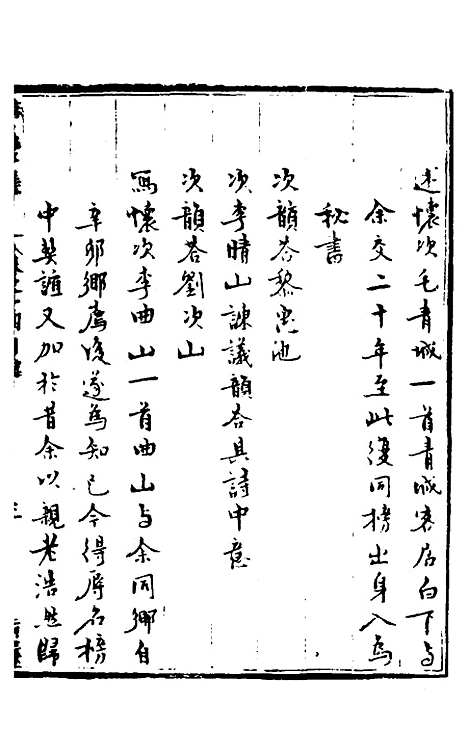 述懷次毛青城一首青城客居白下与
余交二十年至此復同榜出身入為
秘書
次韻答黎惠池
次李晴山諫議韻答其詩中意
次韻答劉次山
寫懷次李曲山一首曲山与余同鄉自
辛卯鄉薦後遂為知已今得厚名榜
中契誼又加於昔余以親老浩然歸